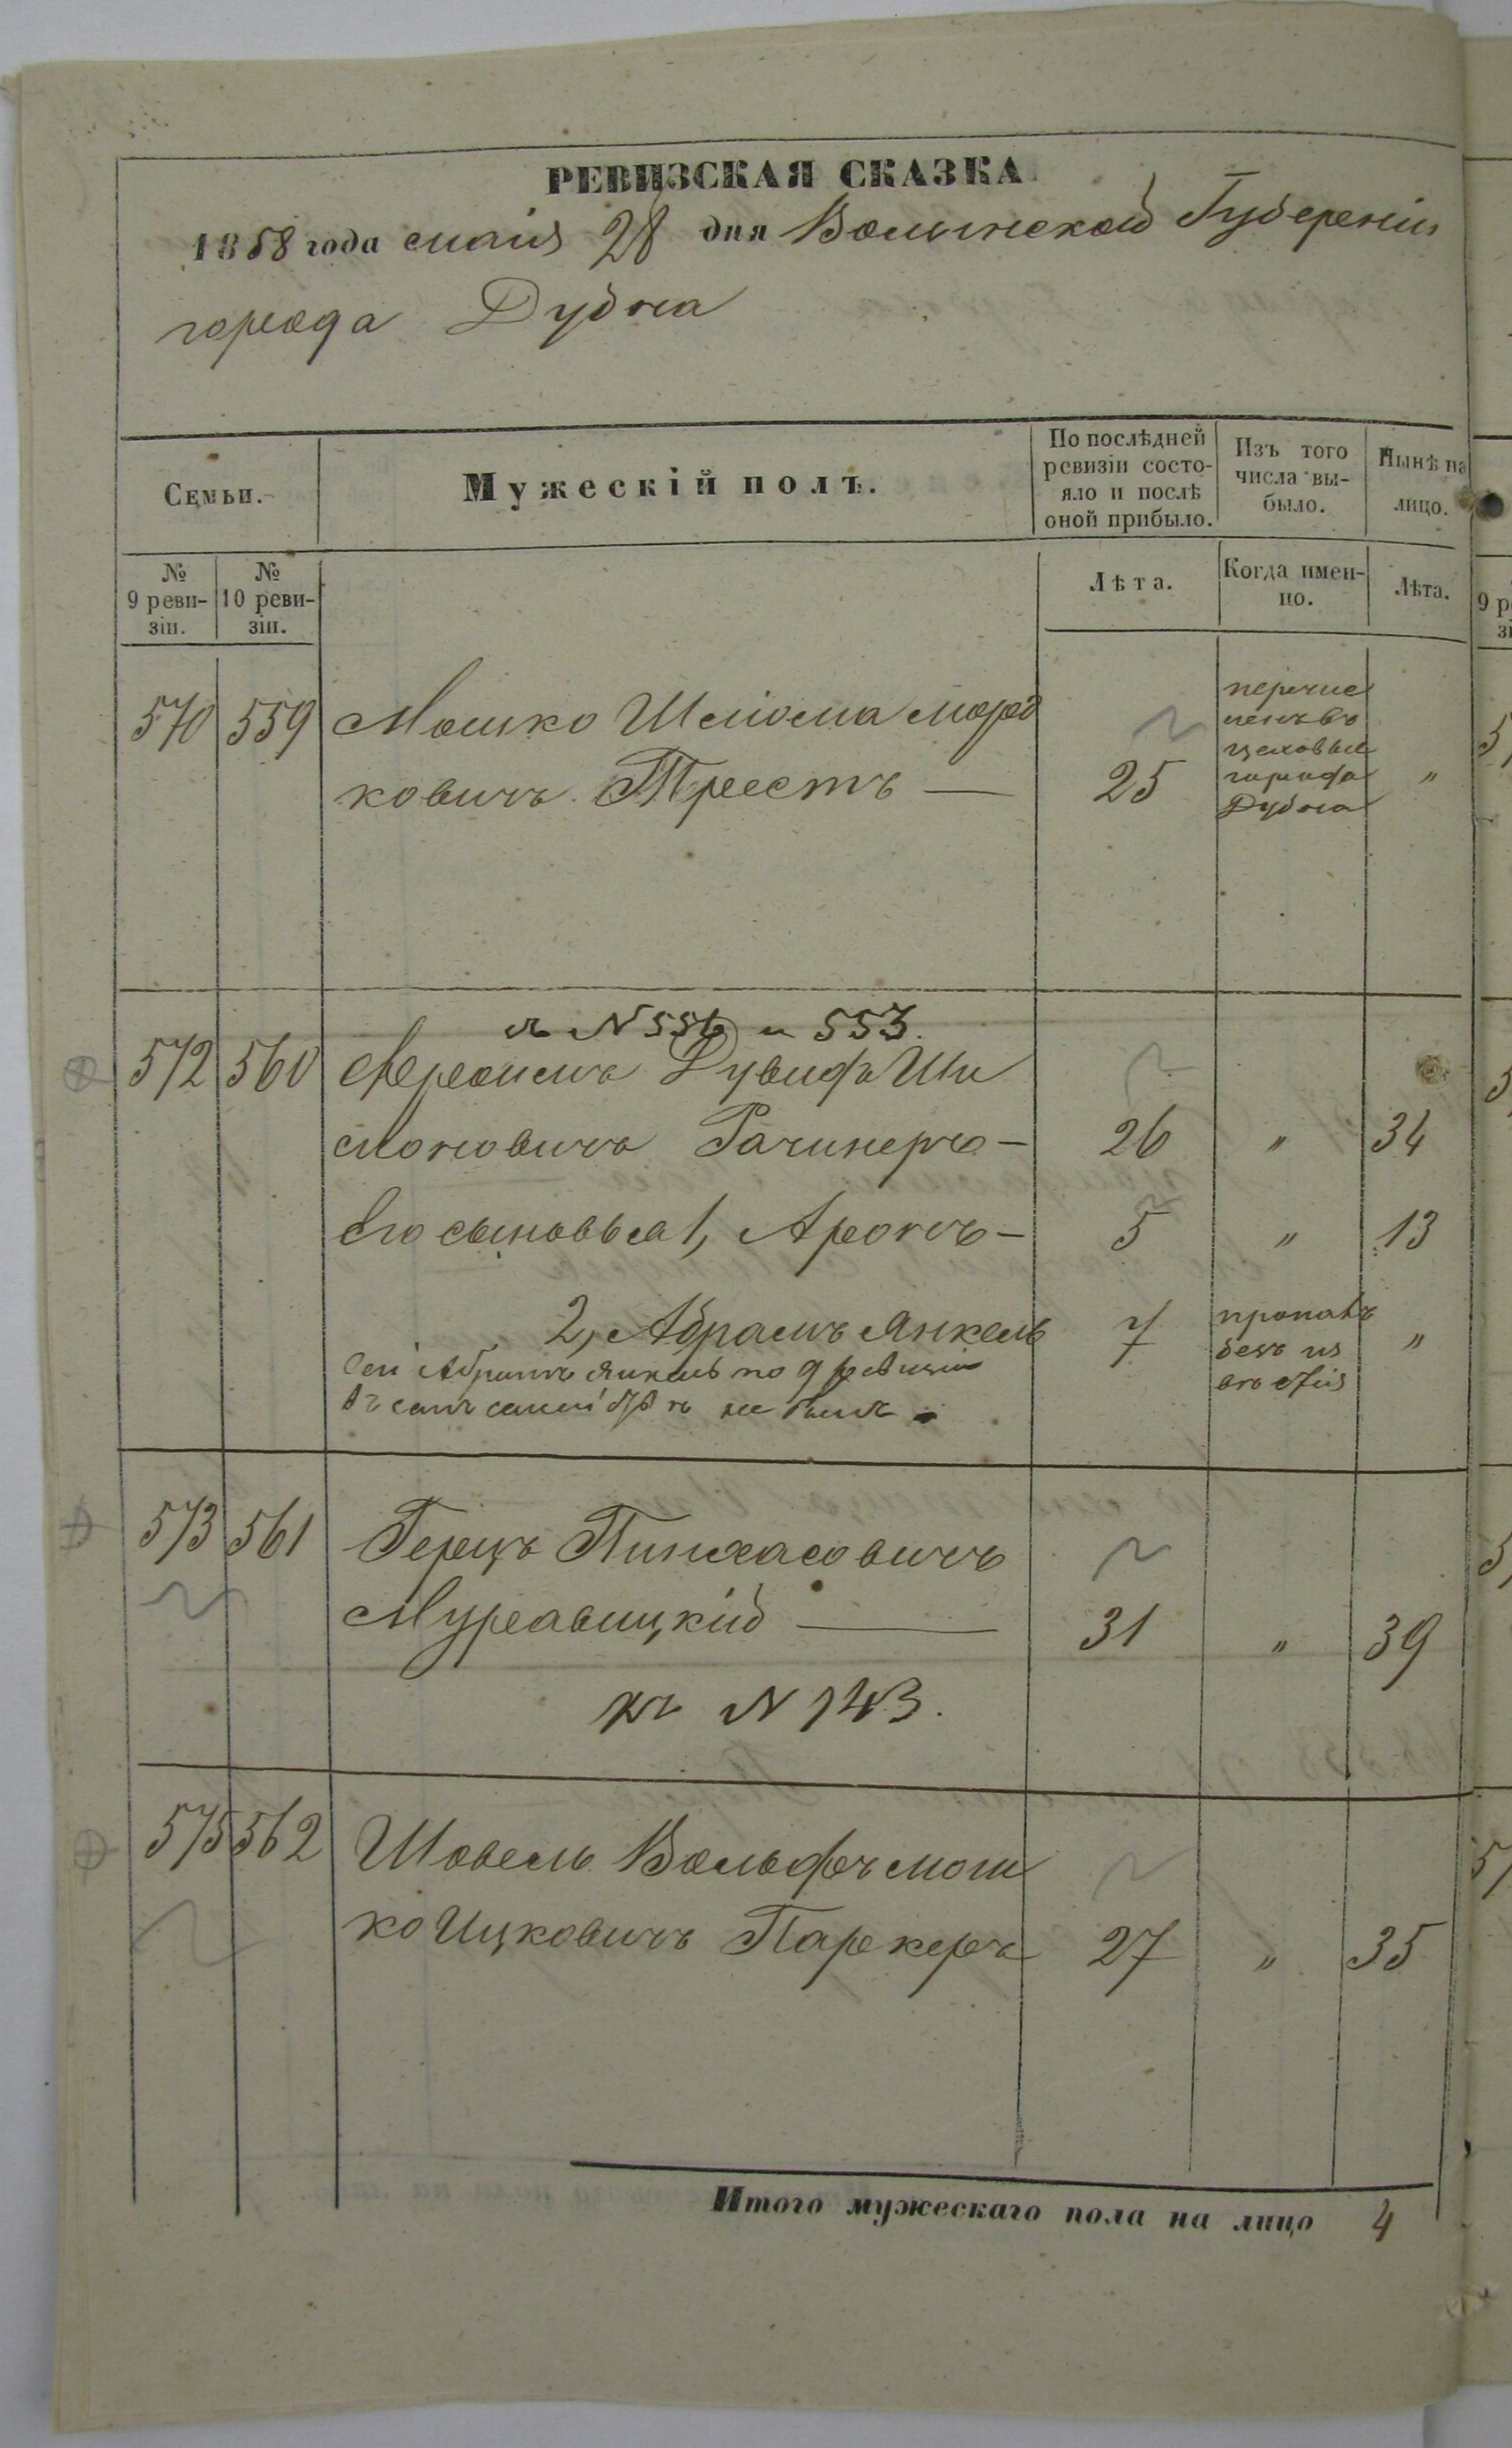 РЕВИЗСКАЯ СКАЗКА
1858 года маія 28 дня Волынской Губерніи
города Дубна
Семьи.
Мужескій полъ.
По послѣдней ревизіи состо-
яло и послѣ
оной прибыло.
Изъ того
числа вы-
было.
Нынѣ на
лицо.
№
9 реви-
зіи.
№
10 реви-
зіи.
Лѣта.
Когда имен-
но.
Лѣта.
570 559 Мошко Шлiома Морд
ковичъ Трестъ — 25 "
перечис
ленъ въ
цеховые
города
Дубна
къ N 556 и 553.
572 560 Дувидъ Ши
моновичъ Рачинеръ — 26 " 34
Его сыновья 1, Аронъ — 5 " 13
2, Абрамъ Янкель 7 "
пропалъ
безъ из
вѣстія
Сей Абрамъ Янкель по 9 ревизіи
въ семъ не былъ
573 561 Герцъ Пинхасовичъ
Муравицкій — 31 " 39
къ N 143.
575 562 Шовель Вольфъ Мош
ко Ицковичъ Паркеръ 27 " 35
Итого мужескаго пола на лицо 4